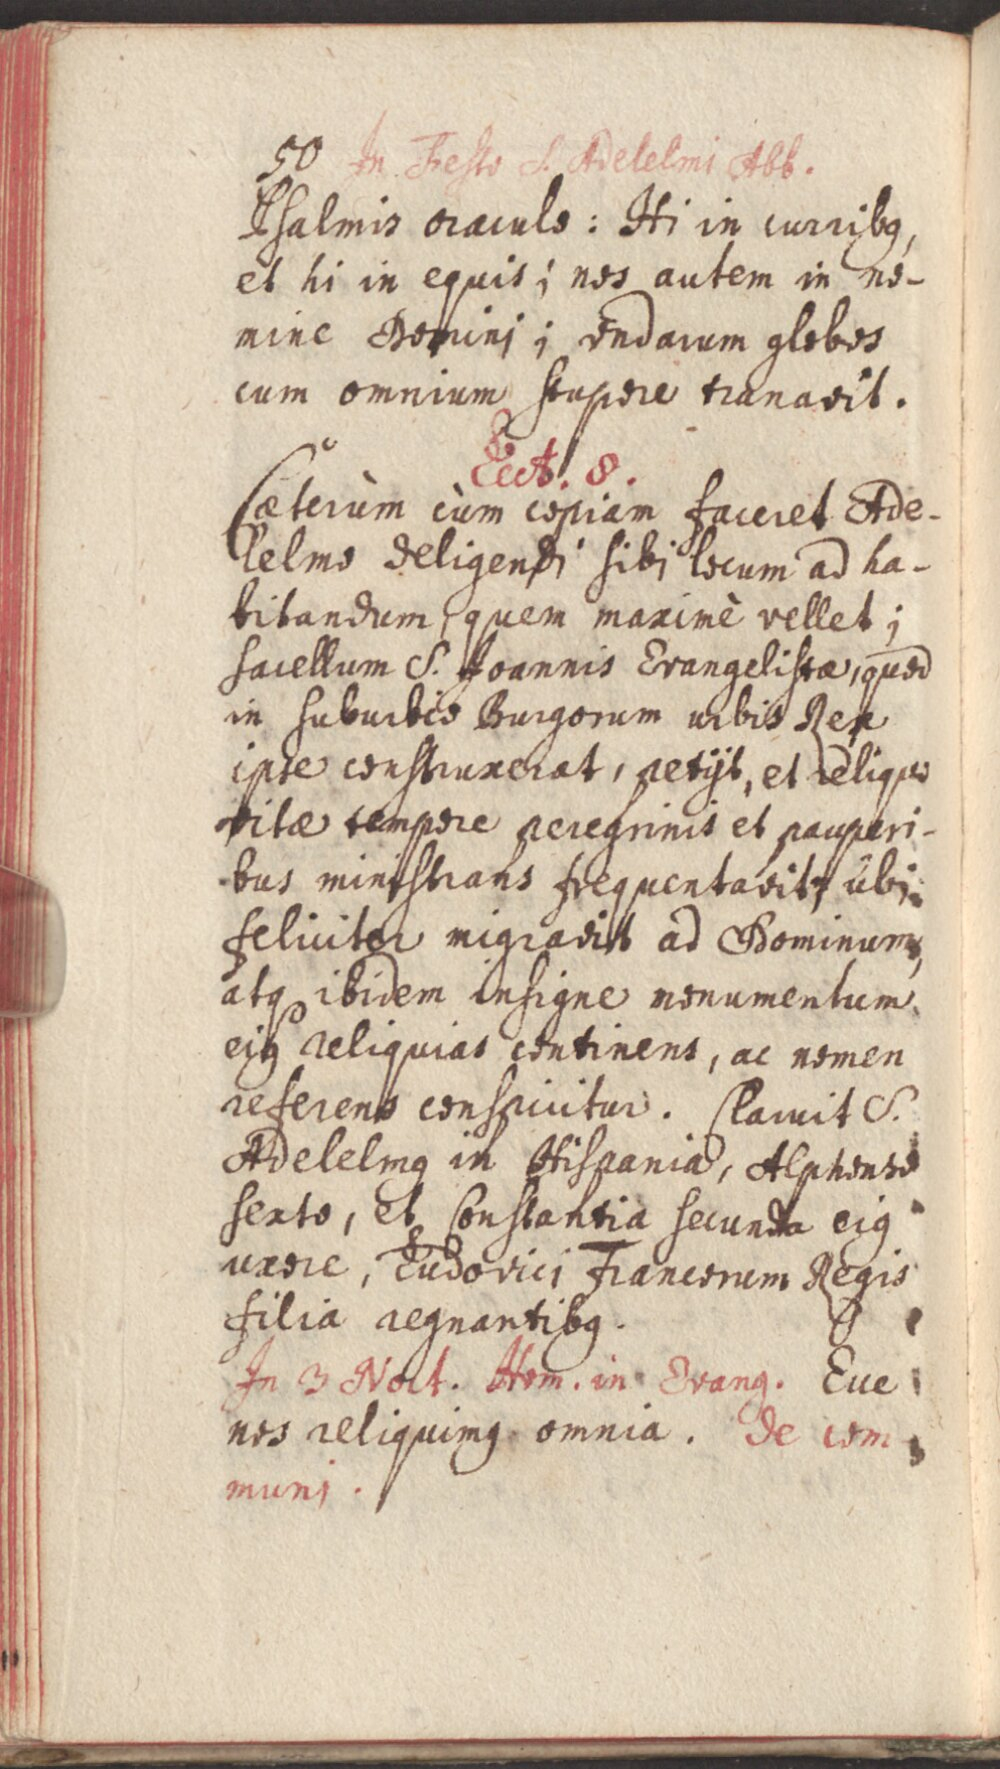 50 In Festo S. Adelelmi Abb.
Psalmis oraculo : Hi in curribq,
et hi in equis ; nos autem in no-
mine Dominj ; vndarum globos
cum omnium stupore tranavit.
Lect. 8.
Cæterùm cùm copiam faceret Ade-
lelmo deligendi sibj locum ad ha-
bitandum, quem maximè vellet ;
sacellum S. Joannis Evangelistæ, quod
in suburbio Burgorum urbis Rex
ipse construxerat, petijt, et reliquo
vitæ tempore peregrinis et pauperi-
bus ministrans frequentavit, ubi
feliciter migravit ad Dominum,
atq ibidem insigne monumentum
eiq reliquias continens, ac nomen
referens conspicitur. Claruit S.
Adelelmq in Hispania, Alphonso
sexto, et Constantia secunda eiq
uxore, Ludovici Francorum Regis
filia regnantibq.
In 3 Noct. Hom. in Evang. Ecce
nos reliquimq omnia. De com
munj.